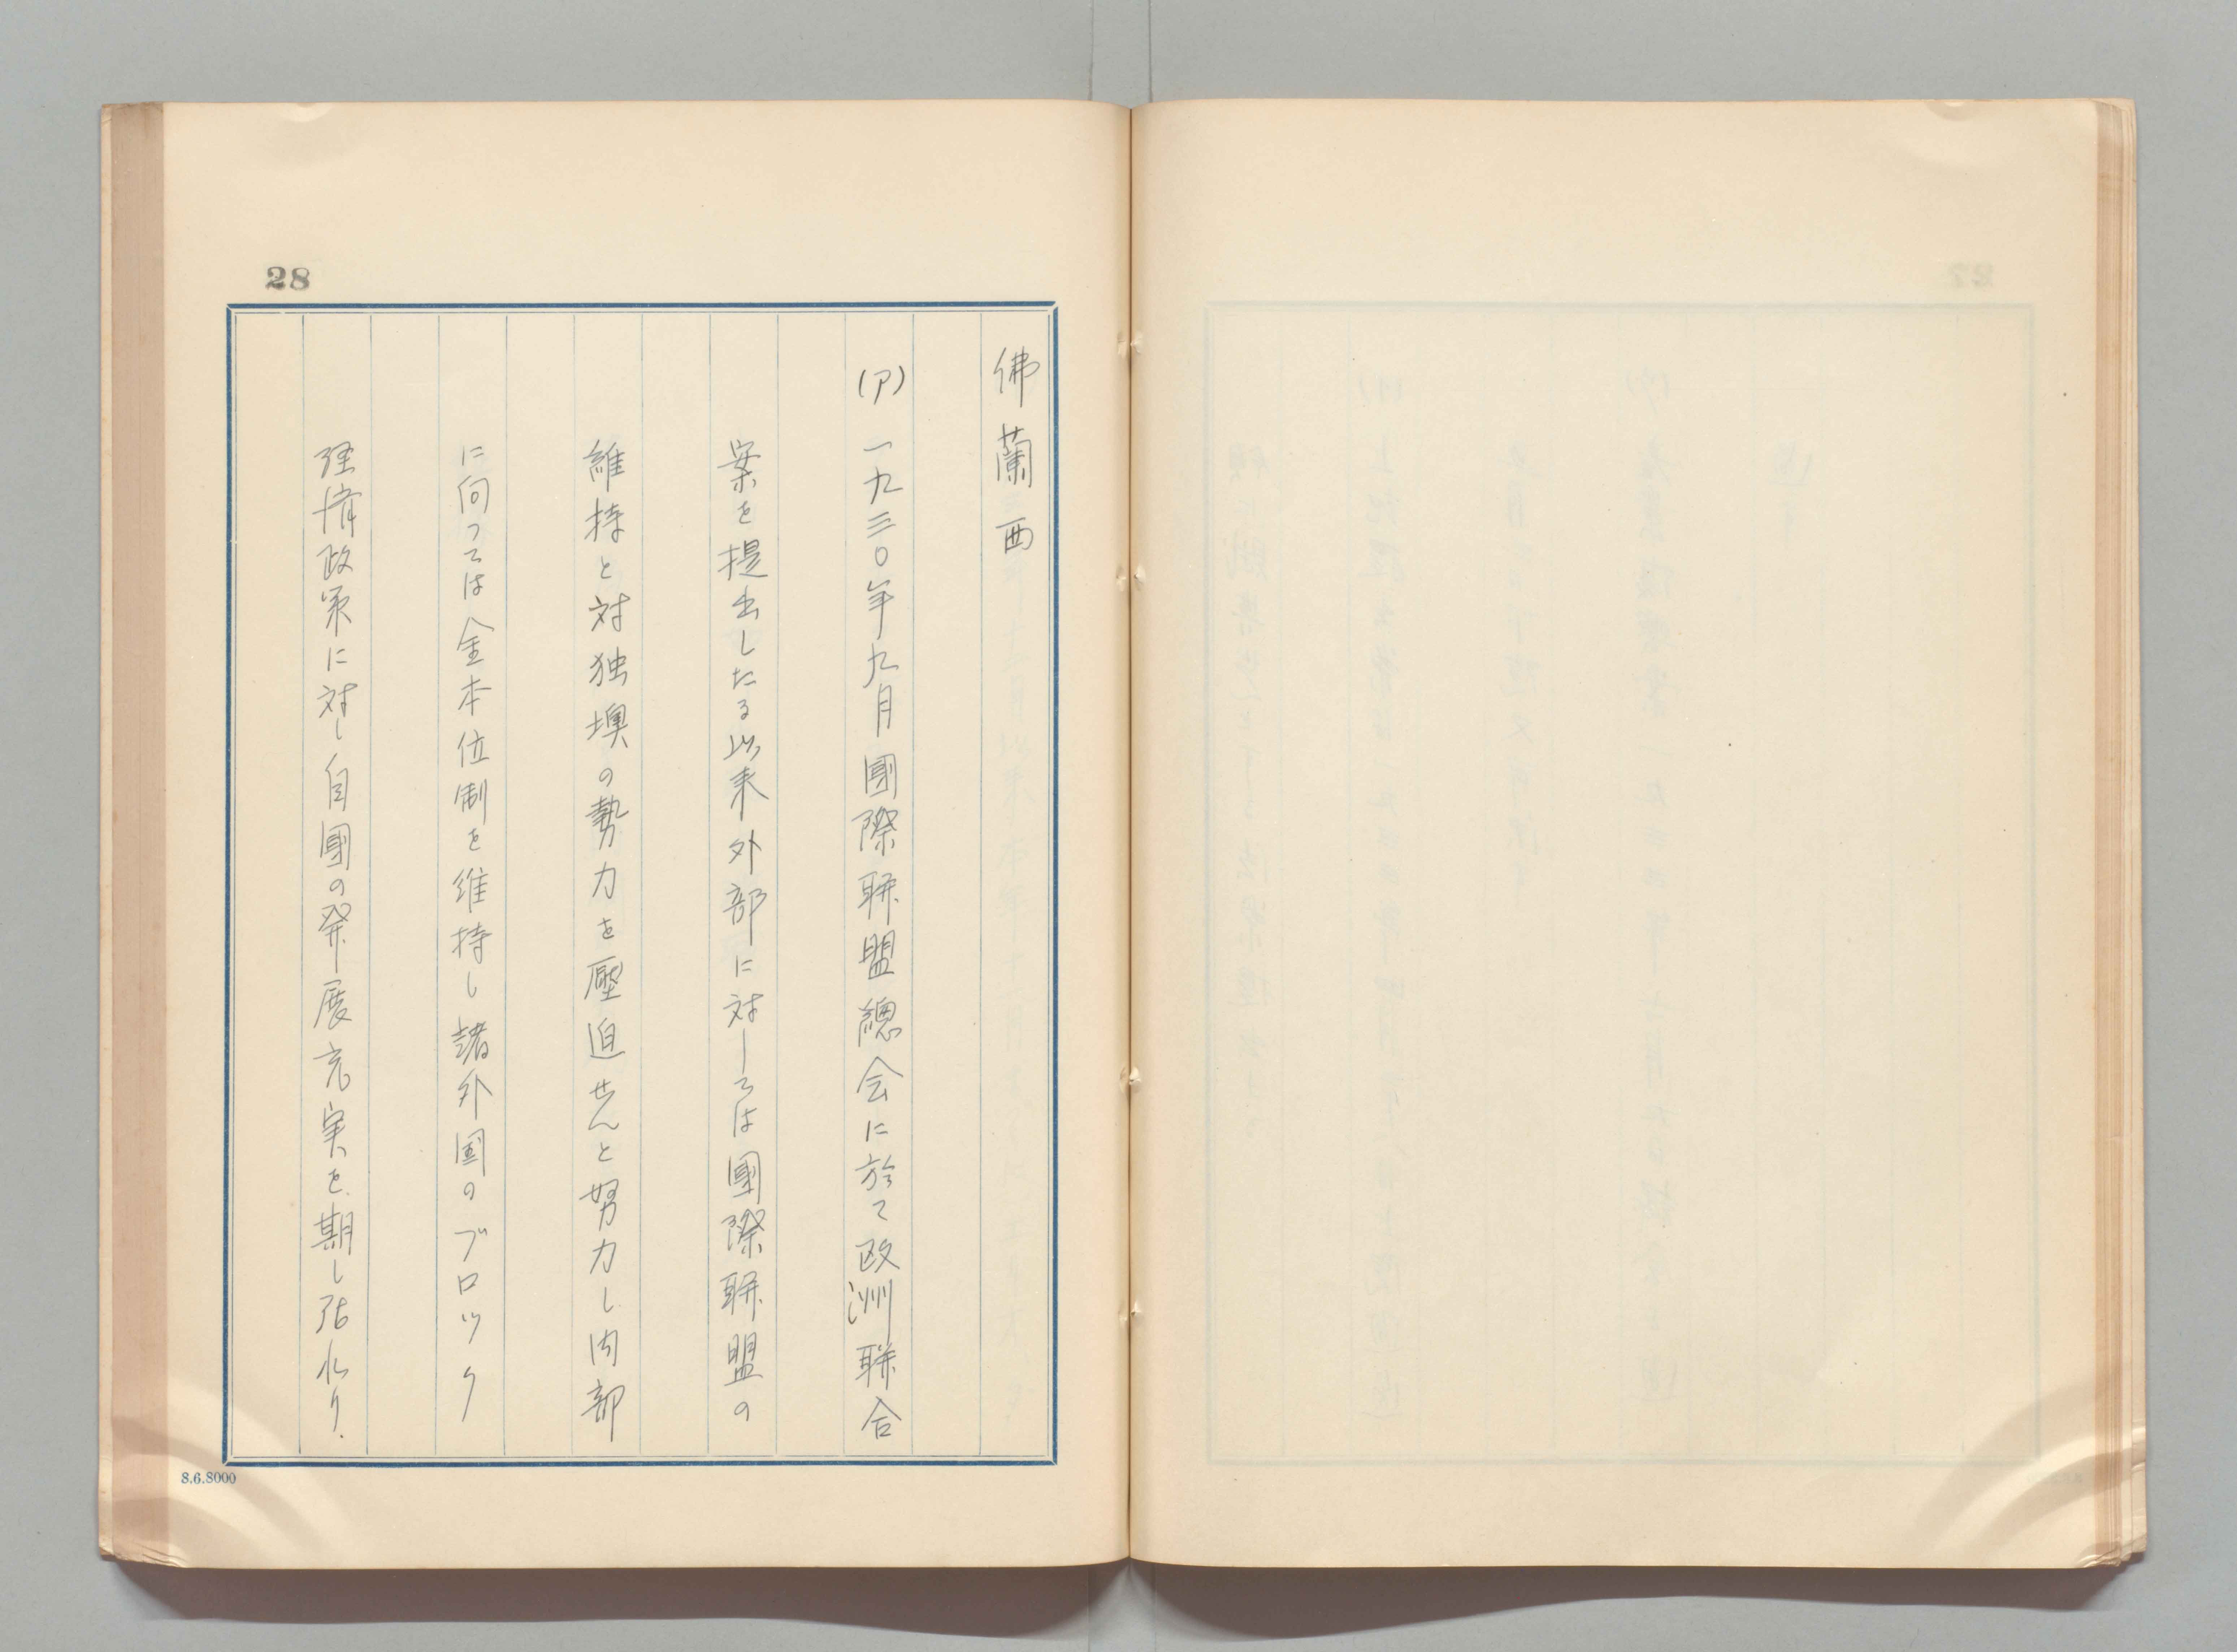 28
佛蘭西
(ア) 一九三〇年九月國際聯盟總会に於て欧洲聯合
案を提出したる以来外部に対しては國際聯盟の
維持と対独墺の勢力を壓迫せんと努力し内部
に向つては金本位制を維持し諸外国のブロック
経済政策に対し自國の発展充実を期し居れり.
8.6.8000